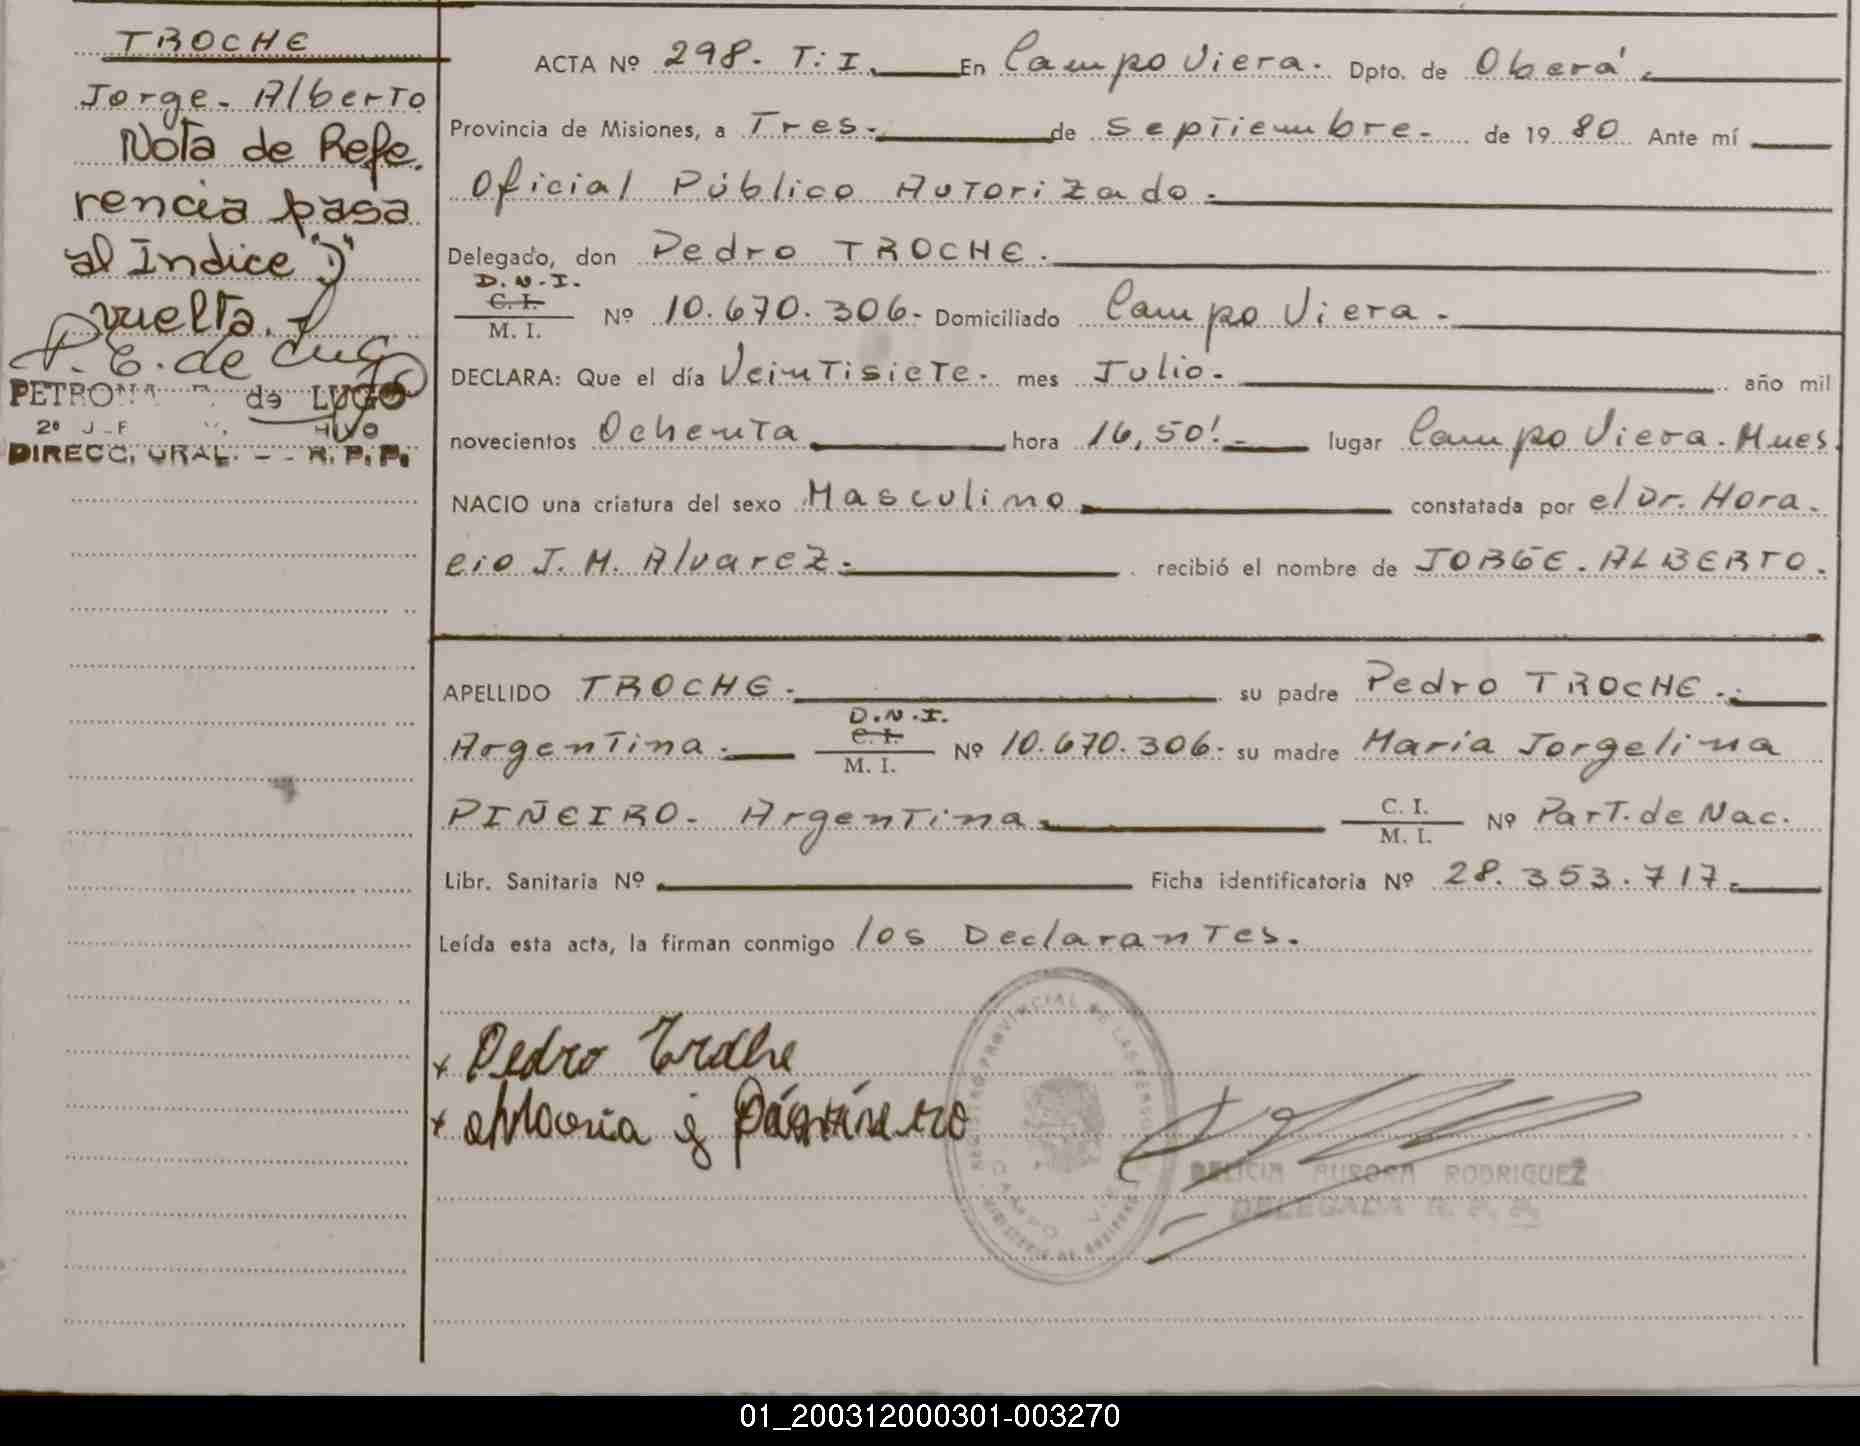 TROCHE
Jorge. Alberto
Nota de Refe.
rencia pasa
al Indice "J"
vuelta.
P. E. de Lugo
PETRONA de LUGO
2º
DIRECC. GRAL. R. P. P.
ACTA Nº 298. T: I. En Campo Viera. Dpto. de Oberá.
Provincia de Misiones, a Tres. de Septiembre. de 19 80 Ante mí
Oficial Público Autorizado.
Delegado, don Pedro TROCHE.
D.N.I.
C. I.
M. I. Nº 10.670.306. Domiciliado Campo Viera.
DECLARA: Que el día Veintisiete. mes Julio. año mil
novecientos Ochenta hora 16,50'. lugar Campo Viera. Mnes.
NACIO una criatura del sexo Masculino constatada por el Dr. Hora.
cio J. M. Alvarez. recibió el nombre de JORGE. ALBERTO.
APELLIDO TROCHE. su padre Pedro TROCHE.
D.N.I.
Argentina. C. I. M. I. Nº 10.670.306. su madre Maria Jorgelina
PIÑEIRO. Argentina. C. I. M. I. Nº Part. de Nac.
Libr. Sanitaria Nº Ficha identificatoria Nº 28.353.717.
Leída esta acta, la firman conmigo los Declarantes.
x Pedro Troche
x Maria j
REGISTRO PROVINCIAL DE LAS PERSONAS
MINISTERIO DE GOBIERNO
CAMPO VIERA
DELICIA AURORA RODRIGUEZ
DELEGADA R. P. P.
01_200312000301-003270